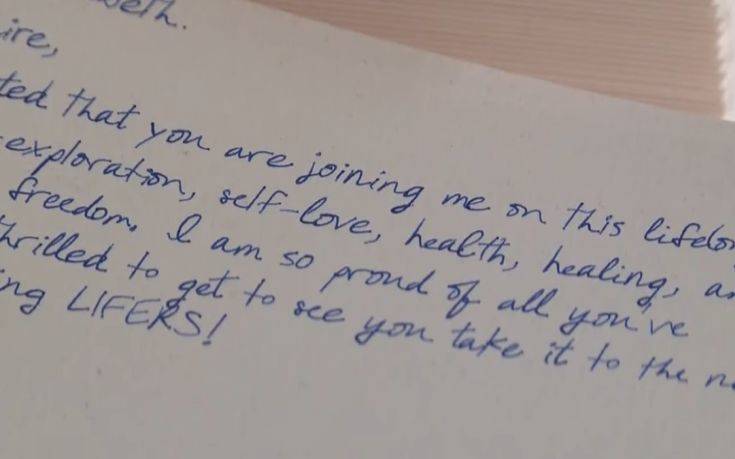 ire,
ted that you are joining me on this lifelon
exploration, self-love, health, healing, an
freedom. I am so proud of all you've
hrilled to get to see you take it to the n
ing LIFERS!